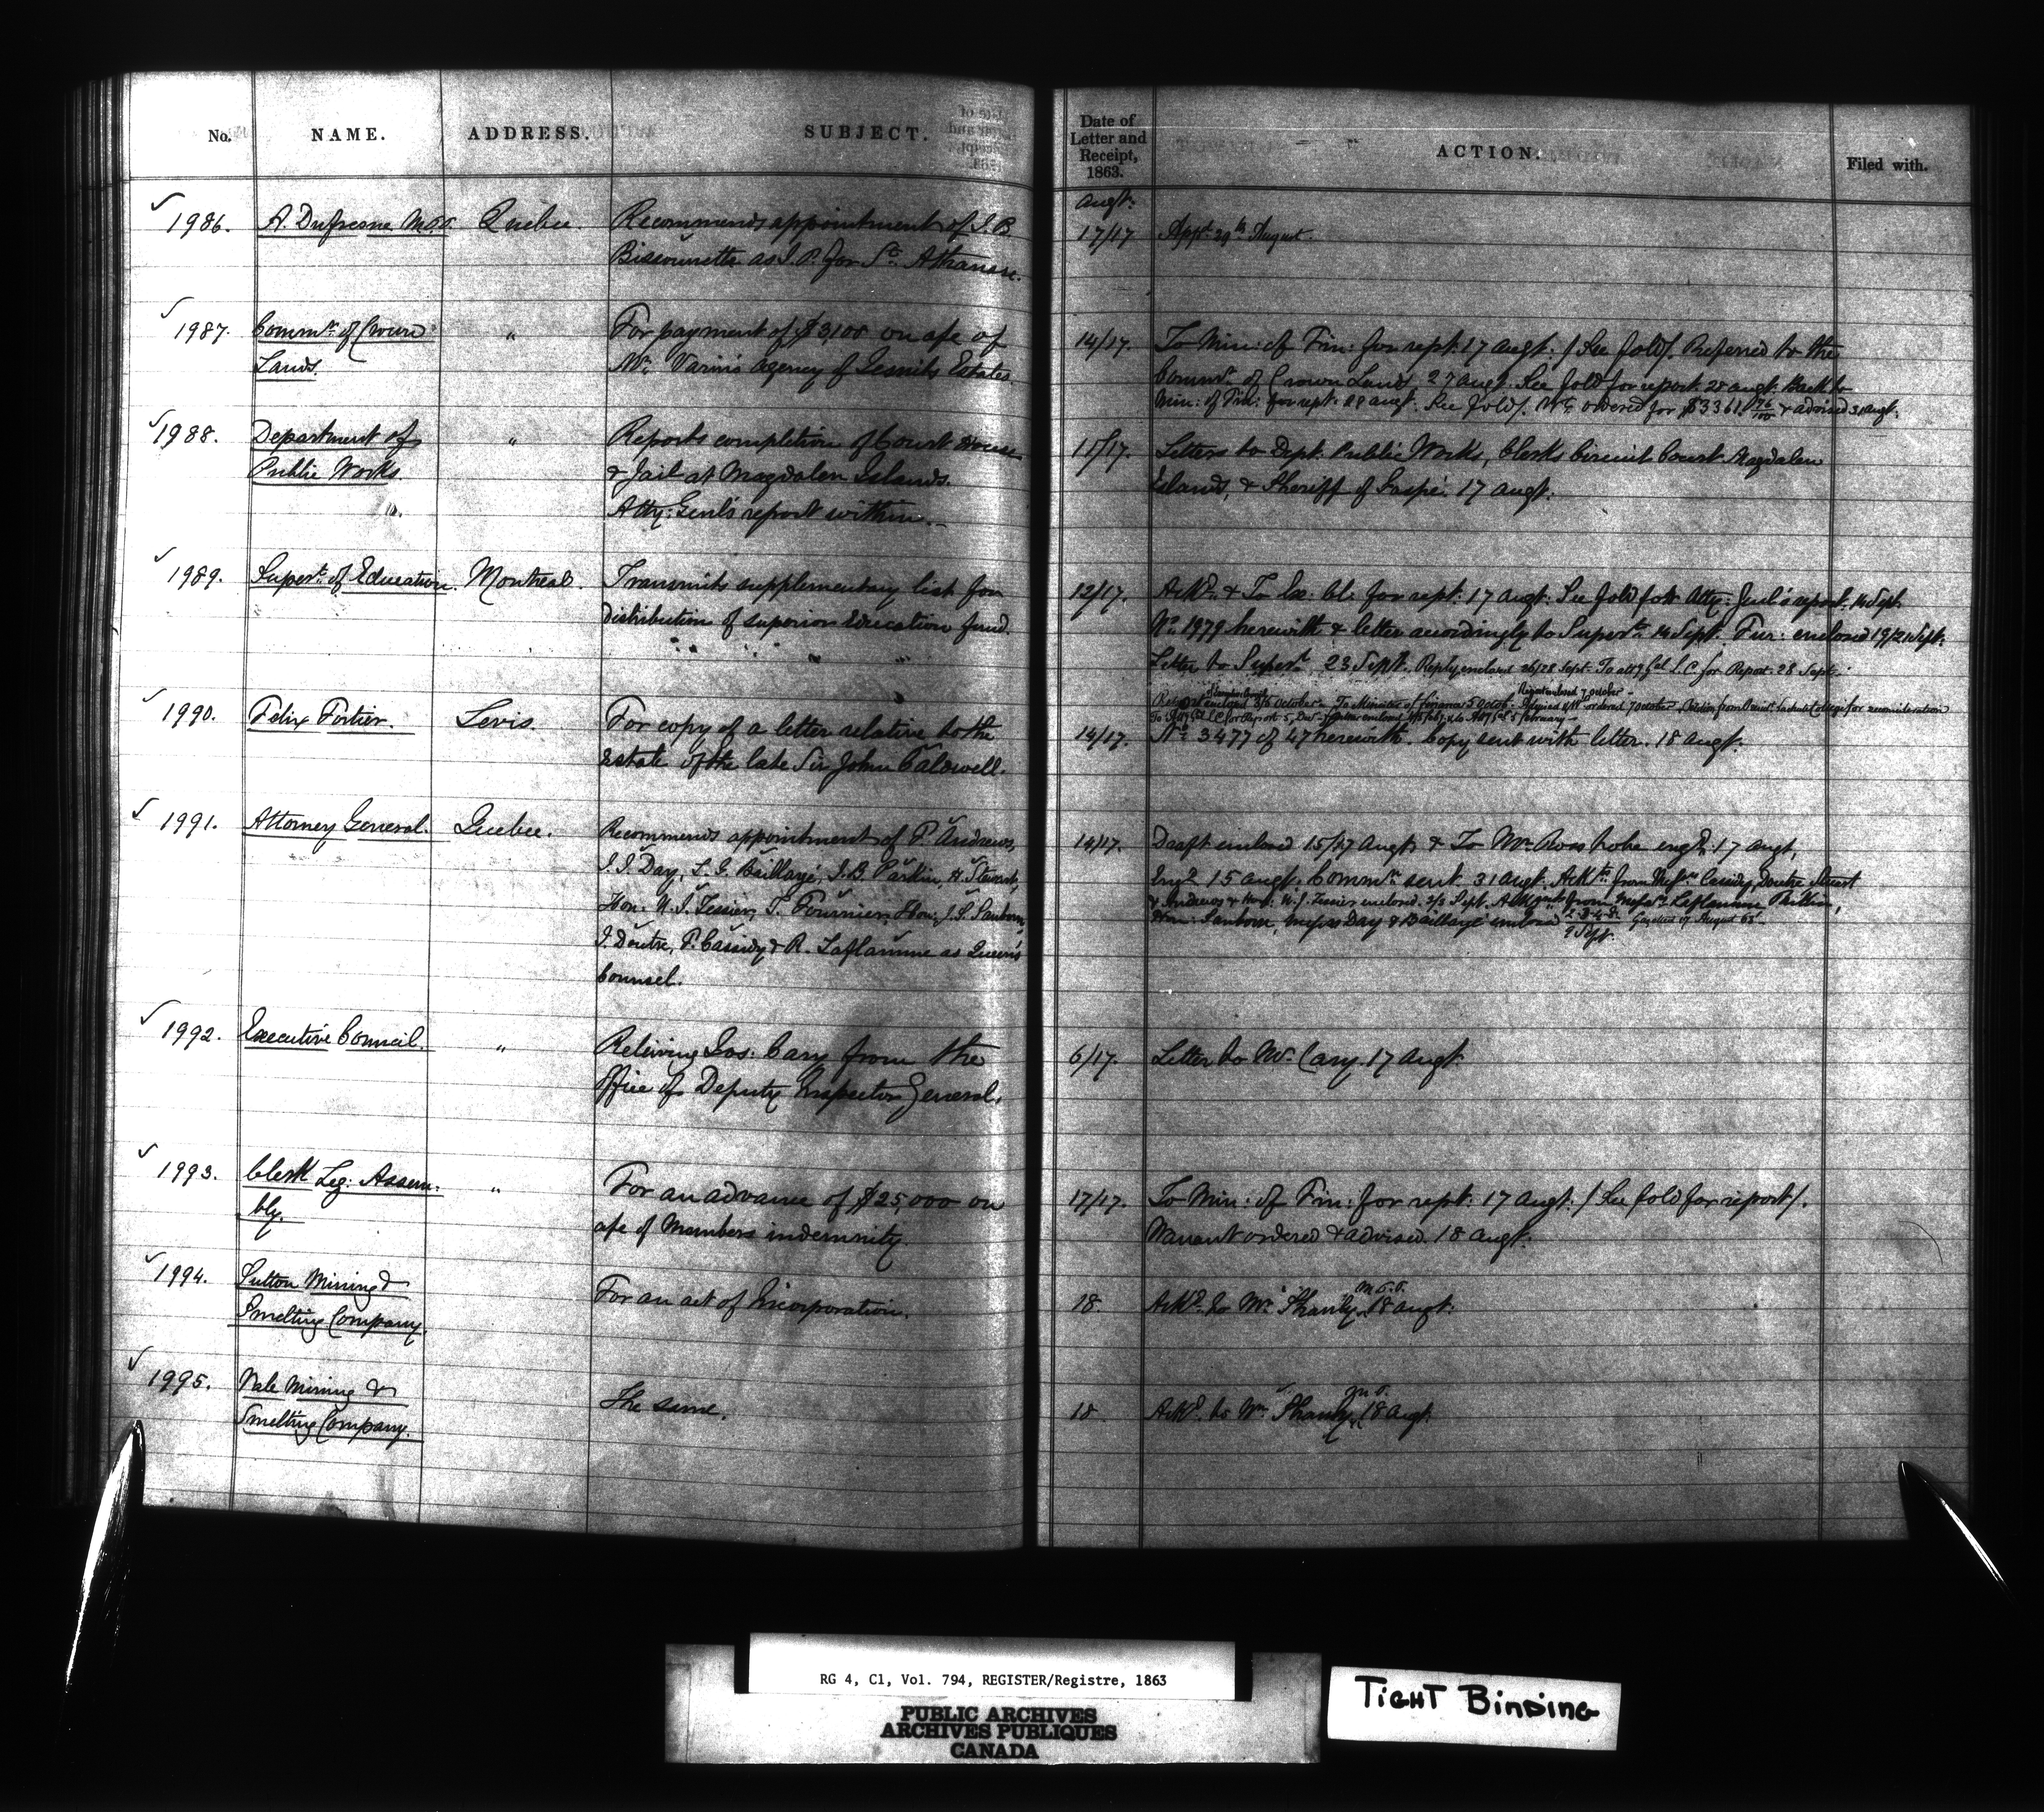 No.
NAME.
ADDRESS.
SUBJECT.
Date of
Letter and
Receipt,
1863.
ACTION.
Filed with.
Augt:
1986. A. Dufresne M.P.P. Quebec. Recommends appointment of J. B.
Biscounette as J. P. for St. Athanase.
17/17 Appt. 29th August.
1987. Commr. of Crown " For payment of $3,100 on a/c of
Lands. Mr. Varin's agency of Jesuits Estates.
14/17. To Min: of Fin: for rept: 17 Augt: / See fold/. Referred to the
Commr. of Crown Lands, 27 Augt. See fold for report. 28 Augt. Back to
Min: of Fin: for rept: 28 Augt. See fold/. Wt. ordered for $3361 76/100 & advised 31 Augt.
1988. Department of " Reports completion of Court House
Public Works & Jail at Magdalen Islands.
". Atty: Genl's report within.
11/17. Letters to Dept. Public Works, Clerks Circuit Court Magdalen
Islands, & Sheriff of Gaspé. 17 Augt:
1989. Supert. of Education. Montreal. Transmits supplementary list for
distribution of superior Education fund.
12/17. Ackd. & To Ex: Cl: for rept: 17 Augt: See fold for Atty: Genl's report. 14 Sept.
No. 1979 herewith & letter accordingly to Supert. 14 Sept. Fur: enclosed 19/21 Sept.
Letter to Supert. 23 Sept. Reply enclosed 26/28 Sept. To Atty Gal L. C. for Report. 28 Sept.
Report enclosed 3/5 October. To Minister of Finance 5 Octob. Report enclosed 7 October
To Atty Gal L C for Report 5, Dec.
1990. Felix Fortier. Levis. For copy of a letter relative to the
Estate of the late Sir John Caldwell.
14/17. No. 3477 of 47 herewith. Copy sent with letter. 18 Augt.
1991. Attorney General. Quebec. Recommends appointment of P. Andrews,
J. J. Day, L. G. Baillargé, J. B. Parkin, H. Stewart,
Hon. U. J. Tessier, T. Fournier, Hon: J. S. Sanborn,
J. Doutre, F. Cassidy & R. Laflamme as Queen's
Counsel.
14/17. Draft enclosed 15/17 Augt. & To Mr. Ross to be engd. 17 Augt.
Engd. 15 Augt. Commns. sent 31 Augt. Ackts. from Messrs. Cassidy, Doutre Stuart
& Andrews & Hon: U. J. Tessier enclosed. 2/3 Sept. Ackts from Messrs. Laflamme Parkin,
Hon: Sanborn, Messrs Day & Baillargé enclosed 9 Sept. Gazetted of August 63
1992. Executive Council. " Relieving Jos: Cary from the
Office of Deputy Inspector General.
6/17. Letter to Mr. Cary. 17 Augt:
1993. Clerk Leg: Assem- " For an advance of $25,000 on
bly. a/c of Members indemnity.
17/17. To Min: of Fin: for rept: 17 Augt: / See fold for report/.
Warrant ordered & advised. 18 Augt.
1994. Sutton Mining & For an act of Incorporation.
Smelting Company.
18 Ackd. to Mr. Shanly, M.P.P. 18 Augt:
1995. Vale Mining & The same.
Smelting Company.
18 Ackd. to Mr. Shanly, 18 Augt:
RG 4, C1, Vol. 794, REGISTER/Registre, 1863
PUBLIC ARCHIVES
ARCHIVES PUBLIQUES
CANADA
TIGHT BINDING